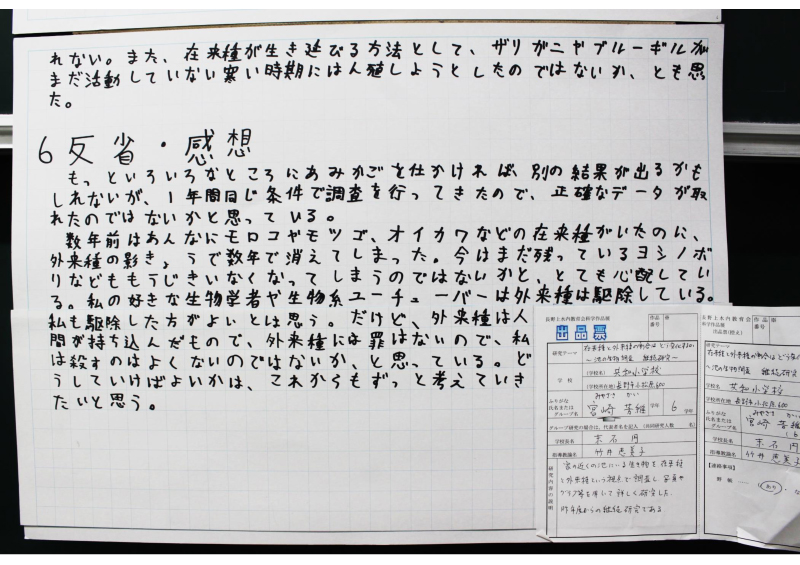 れない。また、在来種が生き延びる方法として、ザリガニやブルーギルが
まだ活動していない寒い時期にはん殖しようとしたのではないか、とも思
た。
6 反省・感想
もっといろいろなところにあみかごを仕かければ、別の結果が出るかも
しれないが、1年間同じ条件で調査を行ってきたので、正確なデータが取
れたのではないかと思っている。
数年前はあんなにモロコやモツゴ、オイカワなどの在来種がいたのに、
外来種の影きょうで数年で消えてしまった。今はまだ残っているヨシノボ
りなどももうじきいなくなってしまうのではないかと、とても心配してい
る。私の好きな生物学者や生物系ユーチューバーは外来種は駆除している。
私も駆除した方がよいとは思う。だけど、外来種は人
間が持ち込んだもので、外来種には罪はないので、私
は殺すのはよくないのではないか、と思っている。ど
うしていけばよいかは、これからもずっと考えていき
たいと思う。
長野上水内教育会科学作品展
受付
番号
出品票
研究テーマ
在来種と外来種の割合は
～池の生物調査 継続研究～
学校
(学校名) 共和小学校
(学校所在地) 長野市小松原600
ふりがな
氏名または
グループ名
みやざき
宮崎
学年
6
学年
グループ研究の場合は、代表者名を記入
学校長名
指導教諭名
竹井 恵美子
研究内容の説明
家の近くの池にいる生き物を在来種
と外来種という視点で調査し、写真や
グラフ等を用いて詳しく研究した。
昨年度からの継続研究である
長野上水内教育会
科学作品展
作品票
研究テーマ
在来種と外来種の割合は
～池の生物調査 継続研究
学校名
共和小学校
学校所在地
長野市小松原600
ふりがな
氏名または
グループ名
みやざき
宮崎
学校長名
指導教諭名
竹井 恵美子
【連絡事項】
あり